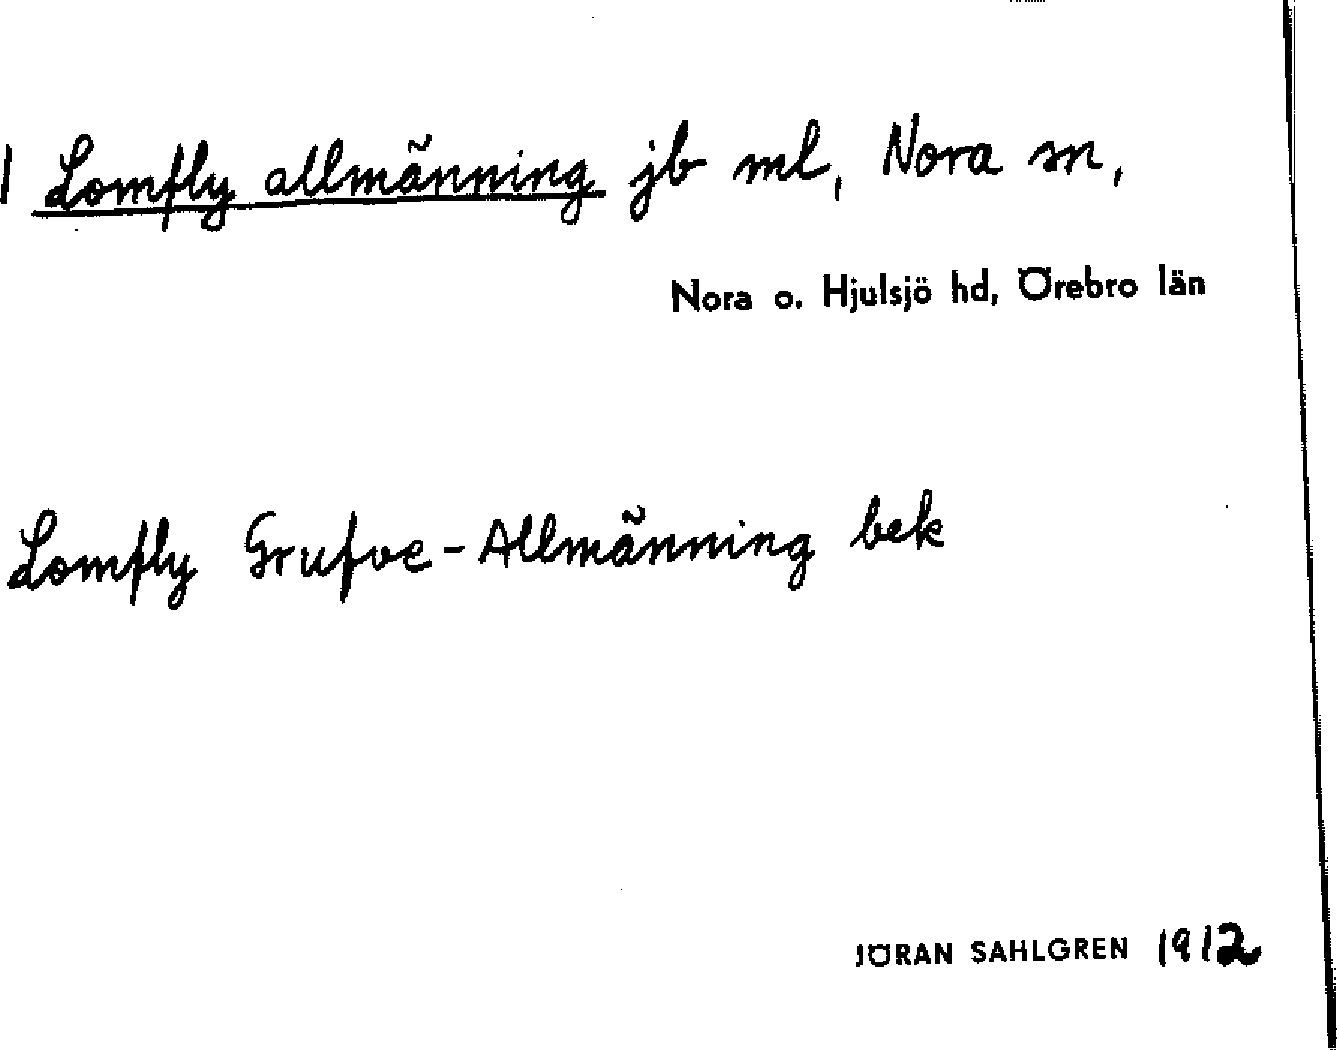 1 Lomfly allmänning jb ml, Nora sn,
Nora o. Hjulsjö hd, Örebro län
Lomfly Grufve-Allmänning bek
JÖRAN SAHLGREN 1912